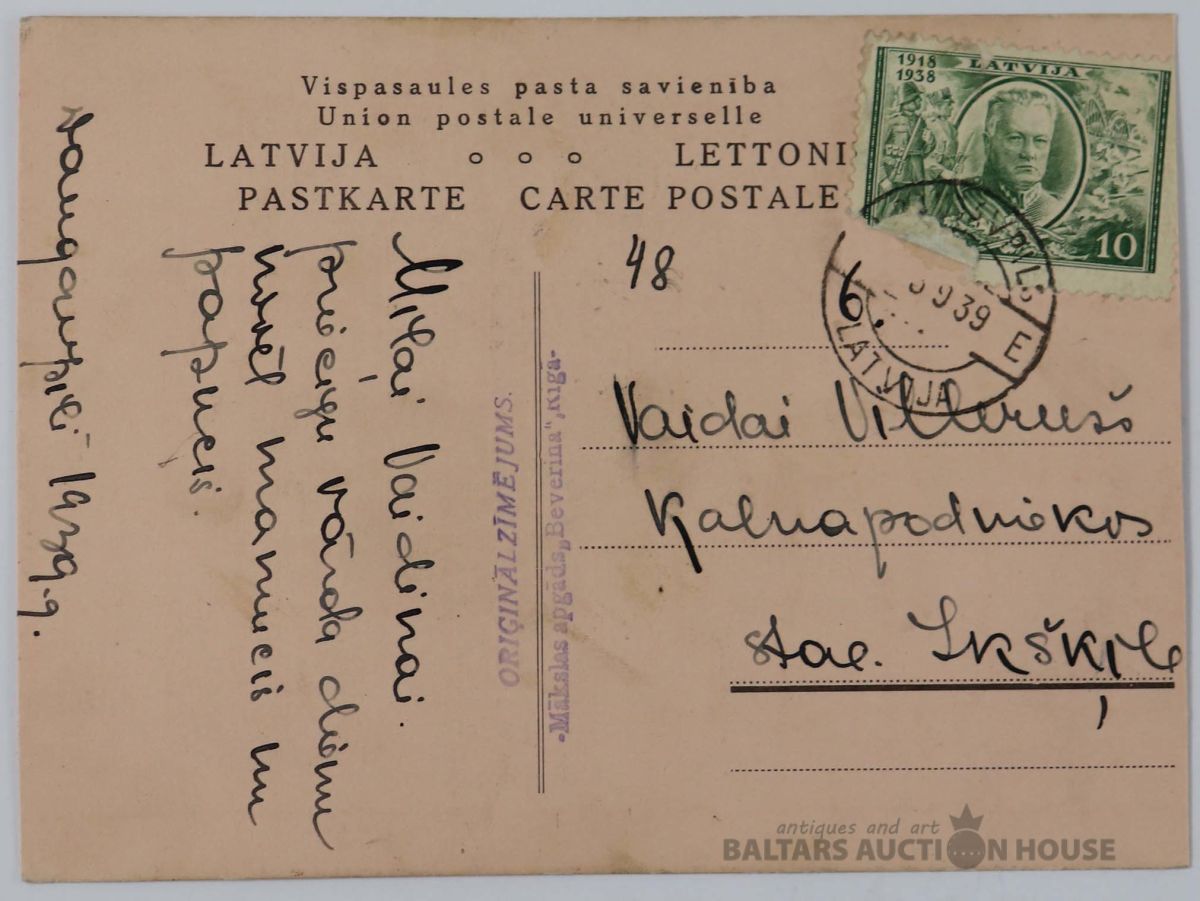 Vispasaules pasta savienība
Union postale universelle
LATVIJA o o o LETTONI
PASTKARTE CARTE POSTALE
1918
1938
LATVIJA
10
48
6.
9 39
E
LATVIJA
Milai Vaidinai.
priecīgu vārda dienu
novēl mamucis un
papucis.
Daugavpilī 1939.9.
ORIĢINĀLZĪMĒJUMS.
-Mākslas apgāds „Beverina", Rīgā-
Vaidai Villerušs
Kalnapodniekos
stac. Ikšķile
antiques and art
BALTARS AUCTION HOUSE